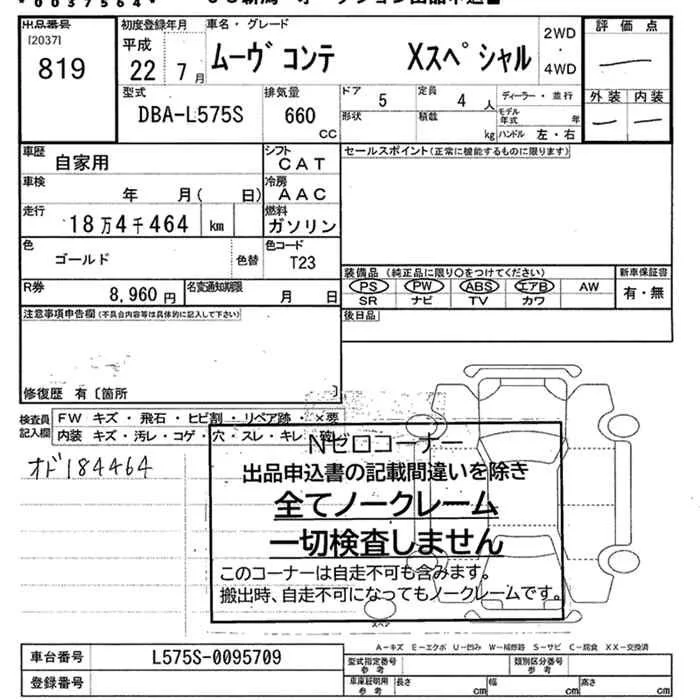 *0037564*
出品番号
[2037]
819
初度登録年月
平成
22 7月
車名・グレード
ムーヴ コンテ Xスペシャル
2WD
・
4WD
評価点
―
外装 内装
― ―
型式
DBA-L575S
排気量
660
CC
ドア
5
定員
4 人
ディーラー・並行
形状
積載
kg
モデル年式 年
ハンドル 左・右
車歴
自家用
シフト
CAT
車検
年 月( 日)
冷房
AAC
走行
18万4千464 km
燃料
ガソリン
色
ゴールド
色替
色コード
T23
R券
8,960 円
名変通知期限
月 日
セールスポイント(正常に機能するものに限ります)
装備品(純正品に限り○をつけてください)
PS PW ABS エアB AW
SR ナビ TV カワ
新車保証書
有・無
後日品
注意事項申告欄(不具合内容等は具体的に記入して下さい)
修復歴 有〔箇所 〕
検査員
記入欄
FW キズ・飛石・ヒビ割・リペア跡・×要
内装 キズ・汚レ・コゲ・穴・スレ・キレ・
オド184464
Nゼロコーナー
出品申込書の記載間違いを除き
全てノークレーム
一切検査しません
このコーナーは自走不可も含みます。
搬出時、自走不可になってもノークレームです。
スペア
A−キズ E−エクボ U−凹み W−補修跡 S−サビ C−腐食 XX−交換済
車台番号
L575S-0095709
登録番号
型式指定番号
参考
類別区分番号
参考
車庫証明用
参考
長さ cm
幅 cm
高さ cm